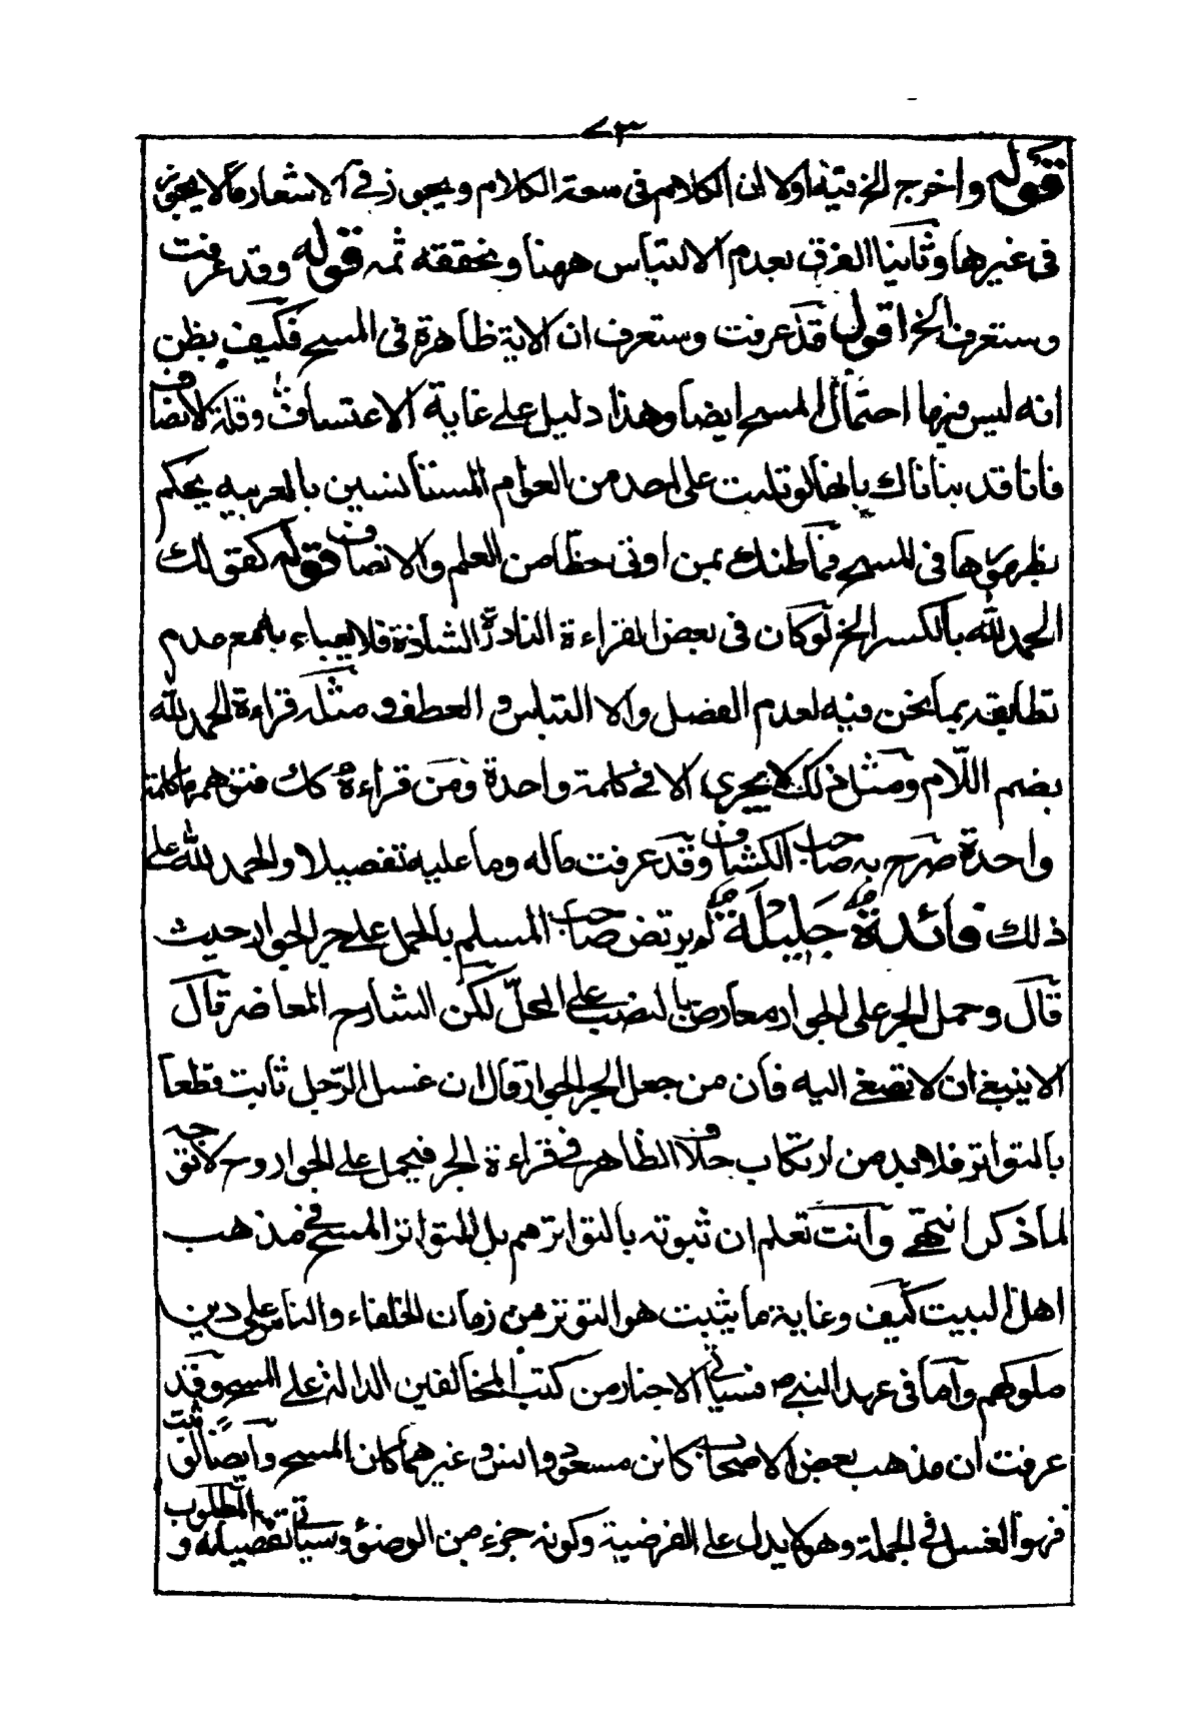 ٧٣
قوله واخرج الخ فيه اولا ان الكلام في سعة الكلام ويجوز في الاشعار ما لا يجوز
في غيرها وثانيا الفرق بعدم الالتباس ههنا وتحققه ثمه قوله وقد عرفت
وستعرف الخ اقول قد عرفت وستعرف ان الاية ظاهرة في المسح فكيف يظن
انه ليس فيها احتمال المسح ايضا وهذا دليل على غاية الاعتساف وقلة الانصاف
فانا قد بيناك بانها لو تليت على احد من العوام المستانسين بالعربيه يحكم
بظهورها في المسح فما ظنك بمن اوتى حظا من العلم والانصاف قوله كقولك
الحمد لله بالكسر الخ لو كان في بعض القراءة النادرة الشاذة فلا يعباء به مع عدم
تطابقه بما نحن فيه لعدم الفصل والالتباس و العطف و مثله قراءة الحمد لله
بضم اللّام ومثل ذلك لا يجري الا في كلمة واحدة ومن قراءه كك فتوهمهما كلمة
واحدة صرح به صاحب الكشاف وقد عرفت ماله وما عليه تفصيلا والحمد لله على
ذلك فائدة جَلِيْلَة لم يرتض صاحب المسلم بالحمل على جر الجوار حيث
قال وحمل الجر على الجوار معارض بالنصب على المحلّ لكن الشارح المعاصر قال
الا ينبغي ان لا تصغي اليه فان من جعل الجر الجوار قال ان غسل الرّجل ثابت قطعا
بالتواتر فلا بد من ارتكاب خلاف الظاهر في قراءة الجر فيحمل على الجوار وح لا توجه
لما ذكر انتهى وانت تعلم ان ثبوته بالتواتر هم بل المتواتر المسح في مذهب
اهل البيت كيف وغاية ما يثبت هو التوتر من زمان الخلفاء والناس على دين
ملوكهم واما في عهد النبي ص فسياتي الاخبار من كتب المخالفين الدالة على المسح وقد
عرفت ان مذهب بعض الاصحاب كابن مسعود وانس و غيرهما كان المسح وايضا لو ثبت
فهو الغسل في الجملة وهو لا يدل على الفرضية وكونه جزء من الوضؤ وسياتي تفصيله و المطلوب